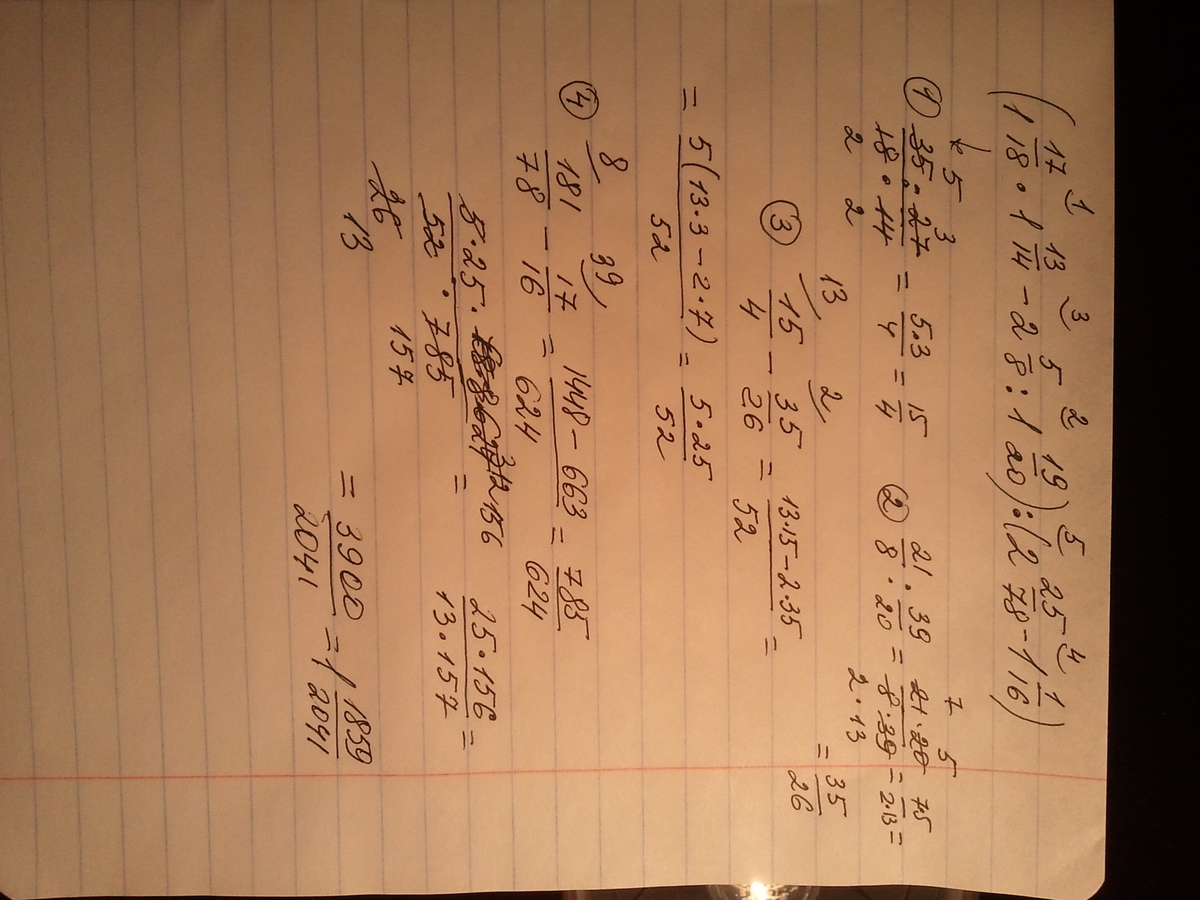 (1 17/18 · 1 13/14 - 2 5/8 : 1 19/20) : (2 25/78 - 1 1/16)
① 35·27/18·14 = 5·3/4 = 15/4 ② 21/8 : 39/20 = 21·20/8·39 = 7·5/2·13 =
= 35/26
③ 15/4 - 35/26 = 13·15-2·35/52 =
= 5(13·3-2·7)/52 = 5·25/52
④ 181/78 - 17/16 = 1448-663/624 = 785/624
5·25·156/52·785 = 25·156/13·157 =
26
13 157
= 3900/2041 = 1 1859/2041